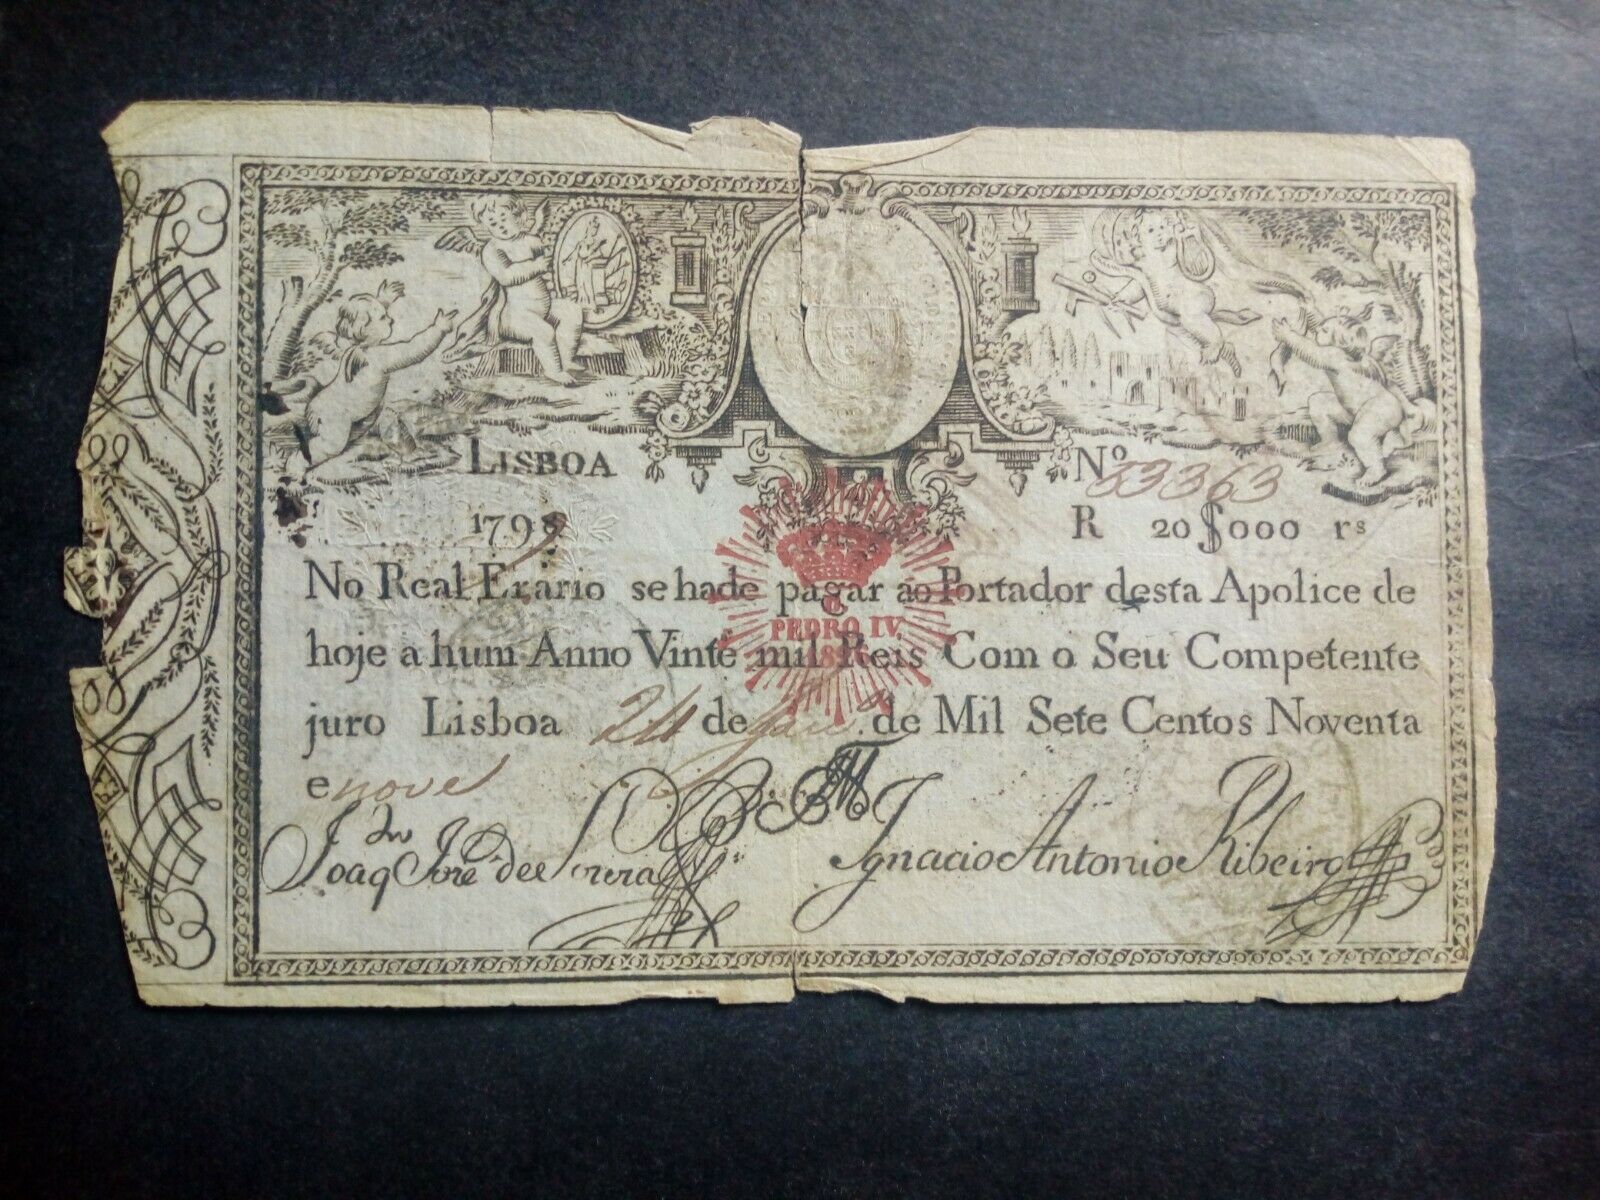 LISBOA
Nº 53363
1799
R 20$000 rs
No Real Erario se hade pagar ao Portador desta Apolice de
hoje a hum Anno Vinte mil Reis Com o Seu Competente
juro Lisboa 24 de Jan.º de Mil Sete Centos Noventa
e nove
PEDRO IV
1826
Joaq José de Ignacio Antonio Ribeiro